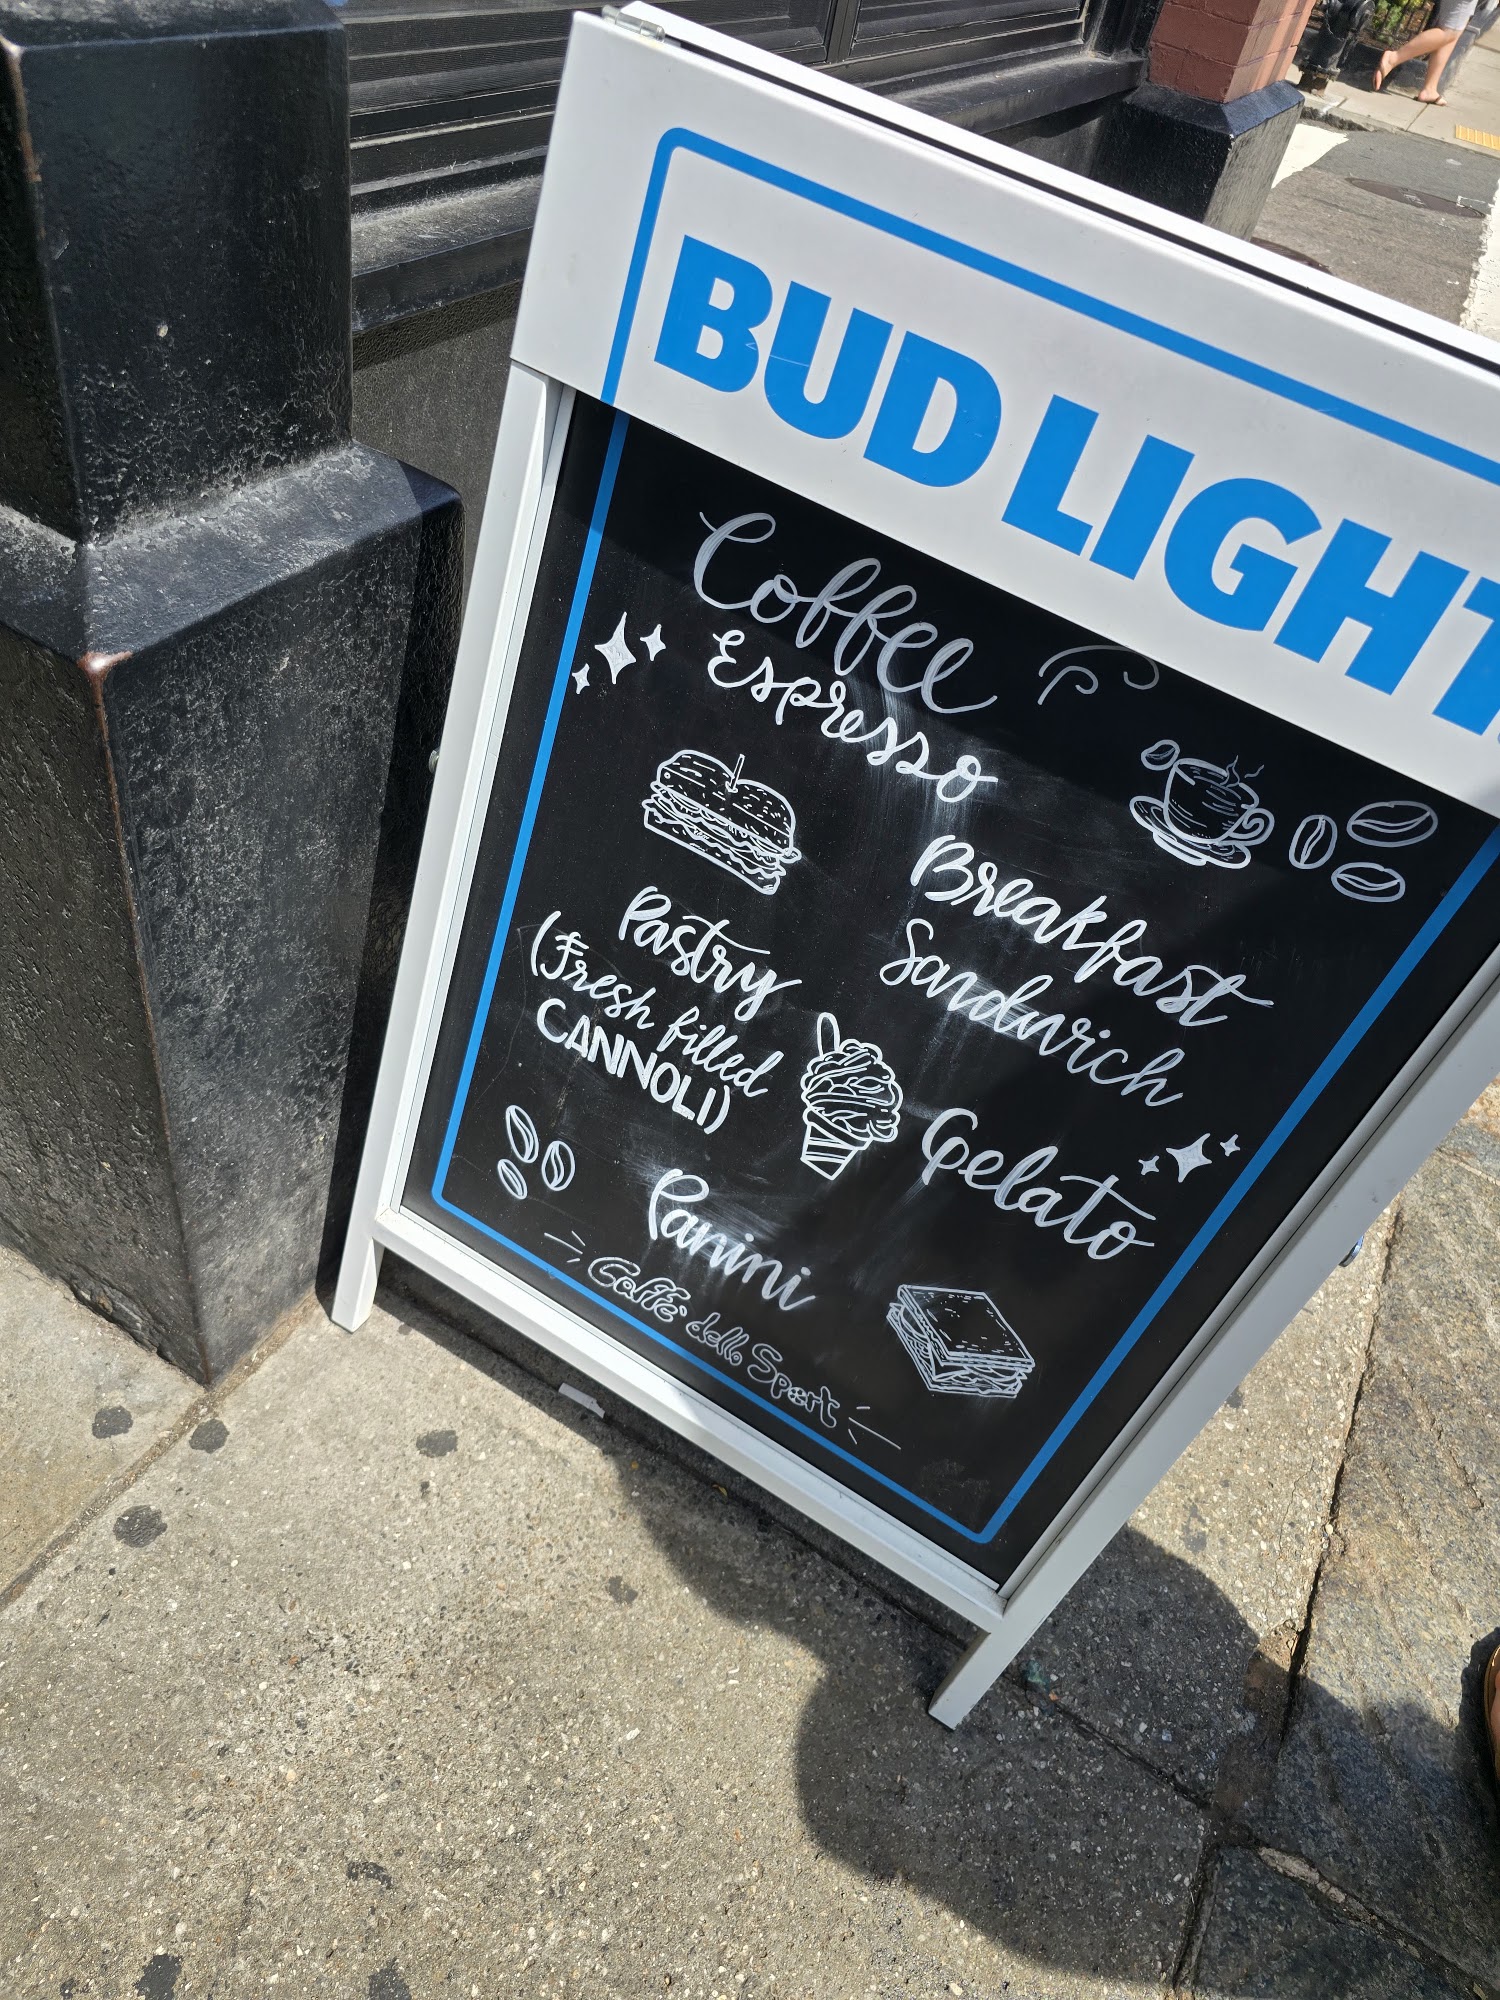 BUD LIGHT
Coffee
Espresso
Breakfast
Sandwich
Pastry
(Fresh filled
CANNOLI)
Gelato
Panini
Caffè dello Sport